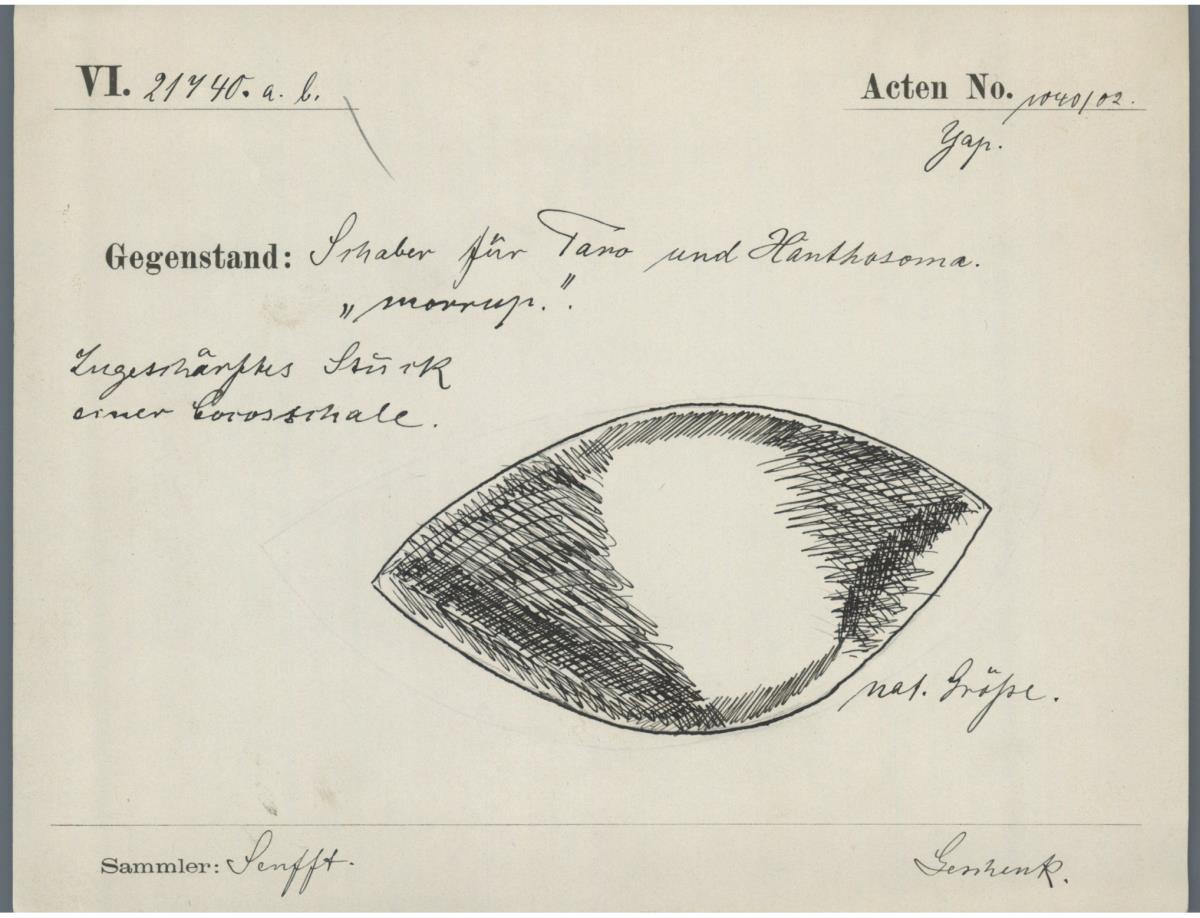 VI. 21740. a. b.
Acten No. 1040/02.
Yap.
Gegenstand: Schaber für Taro und Xanthosoma.
„morrup.".
Zugeschärftes Stück
einer Cocosschale.
nat. Größe.
Sammler: Senfft.
Geschenk.